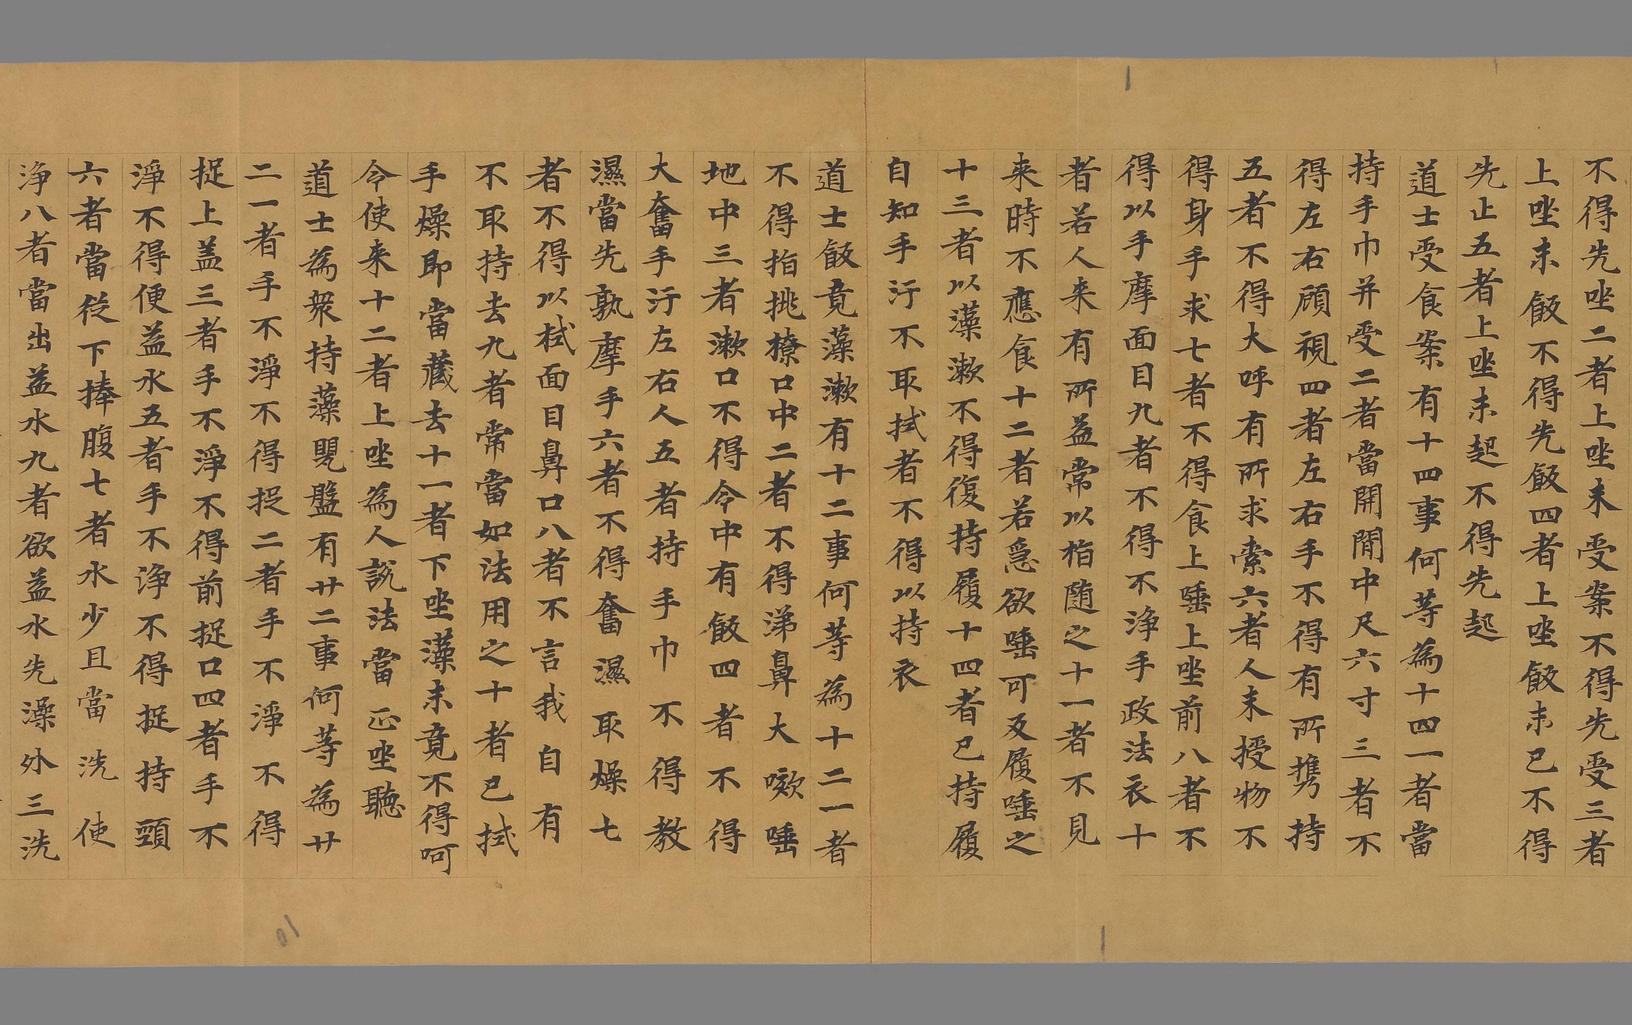 不得先唑二者上唑未受案不得先受三者
上唑未飯不得先飯四者上唑飯未已不得
先止五者上唑未起不得先起
道士受食案有十四事何等為十四一者當
持手巾并受二者當開閒中尺六寸三者不
得左右顧視四者左右手不得有所攜持
五者不得大呼有所求索六者人未授物不
得身手求七者不得食上唾上坐前八者不
得以手摩面目九者不得不淨手政法衣十
者若人来有所益常以指随之十一者不見
来時不應食十二者若急欲唾可及履唾之
十三者以藻漱不得復持履十四者已持履
自知手汙不取拭者不得以持衣
道士飯竟藻漱有十二事何等為十二一者
不得指挑撩口中二者不得涕鼻大嗽唾
地中三者漱口不得令中有飯四者不得
大奮手汙左右人五者持手巾不得教
濕當先孰摩手六者不得奮濕取燥七
者不得以拭面目鼻口八者不言我自有
不取持去九者常當如法用之十者已拭
手燥即當藏去十一者下唑藻未竟不得呵
令使来十二者上唑為人說法當正唑聽
道士為衆持藻甖盤有廿二事何等為廿
二一者手不淨不得捉二者手不淨不得
捉上盖三者手不淨不得前捉口四者手不
淨不得便益水五者手不淨不得捉持頸
六者當從下捧腹七者水少且當洗使
淨八者當出益水九者欲益水先澡外三洗